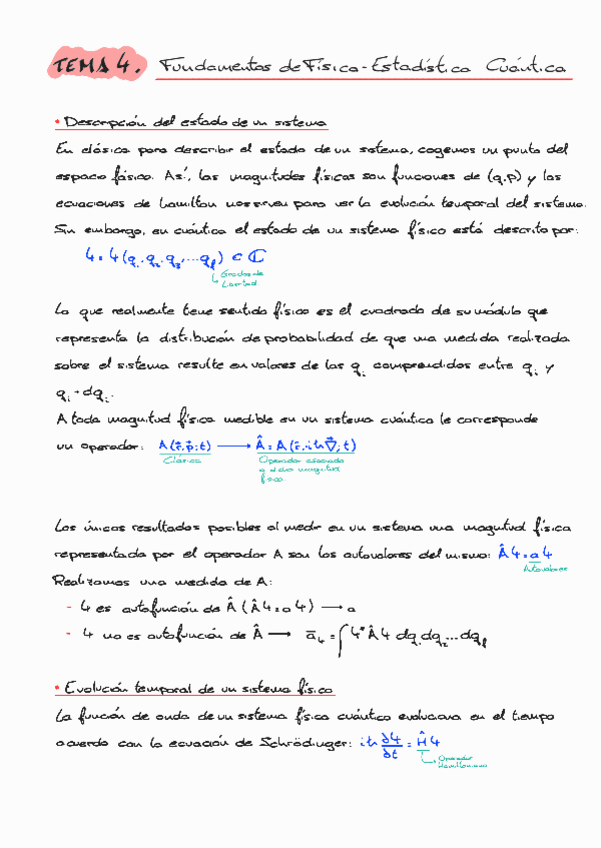 TEMA 4. Fundamentos de Física-Estadística Cuántica
• Descripción del estado de un sistema
En clásica para describir el estado de un sistema, cogemos un punto del
espacio fásico. Así, las magnitudes físicas son funciones de (q,p) y las
ecuaciones de Hamilton nos sirven para ver la evolución temporal del sistema.
Sin embargo, en cuántica el estado de un sistema físico está descrito por:
Ψ = Ψ(q₁, q₂, q₃, ... q_f) ⊂ ℂ
Grados de
Libertad
Lo que realmente tiene sentido físico es el cuadrado de su módulo que
representa la distribución de probabilidad de que una medida realizada
sobre el sistema resulte en valores de las qᵢ comprendidos entre qᵢ y
qᵢ + dqᵢ.
A toda magnitud física medible en un sistema cuántico le corresponde
un operador: A(r⃗,p⃗;t) ⟶ Â = A(r⃗,-iħ∇⃗;t)
Clásica
Operador asociado
a dicha magnitud
física
Los únicos resultados posibles al medir en un sistema una magnitud física
representada por el operador A son los autovalores del mismo: ÂΨ = aΨ
Autovalores
Realizamos una medida de A:
- Ψ es autofunción de Â (ÂΨ = aΨ) ⟶ a
- Ψ no es autofunción de Â ⟶ a̅_Ψ = ∫Ψ* Â Ψ dq₁ dq₂ ... dq_f
• Evolución temporal de un sistema físico
La función de onda de un sistema físico cuántico evoluciona en el tiempo
acuerdo con la ecuación de Schrödinger: iħ ∂Ψ/∂t = ĤΨ
Operador
Hamiltoniano